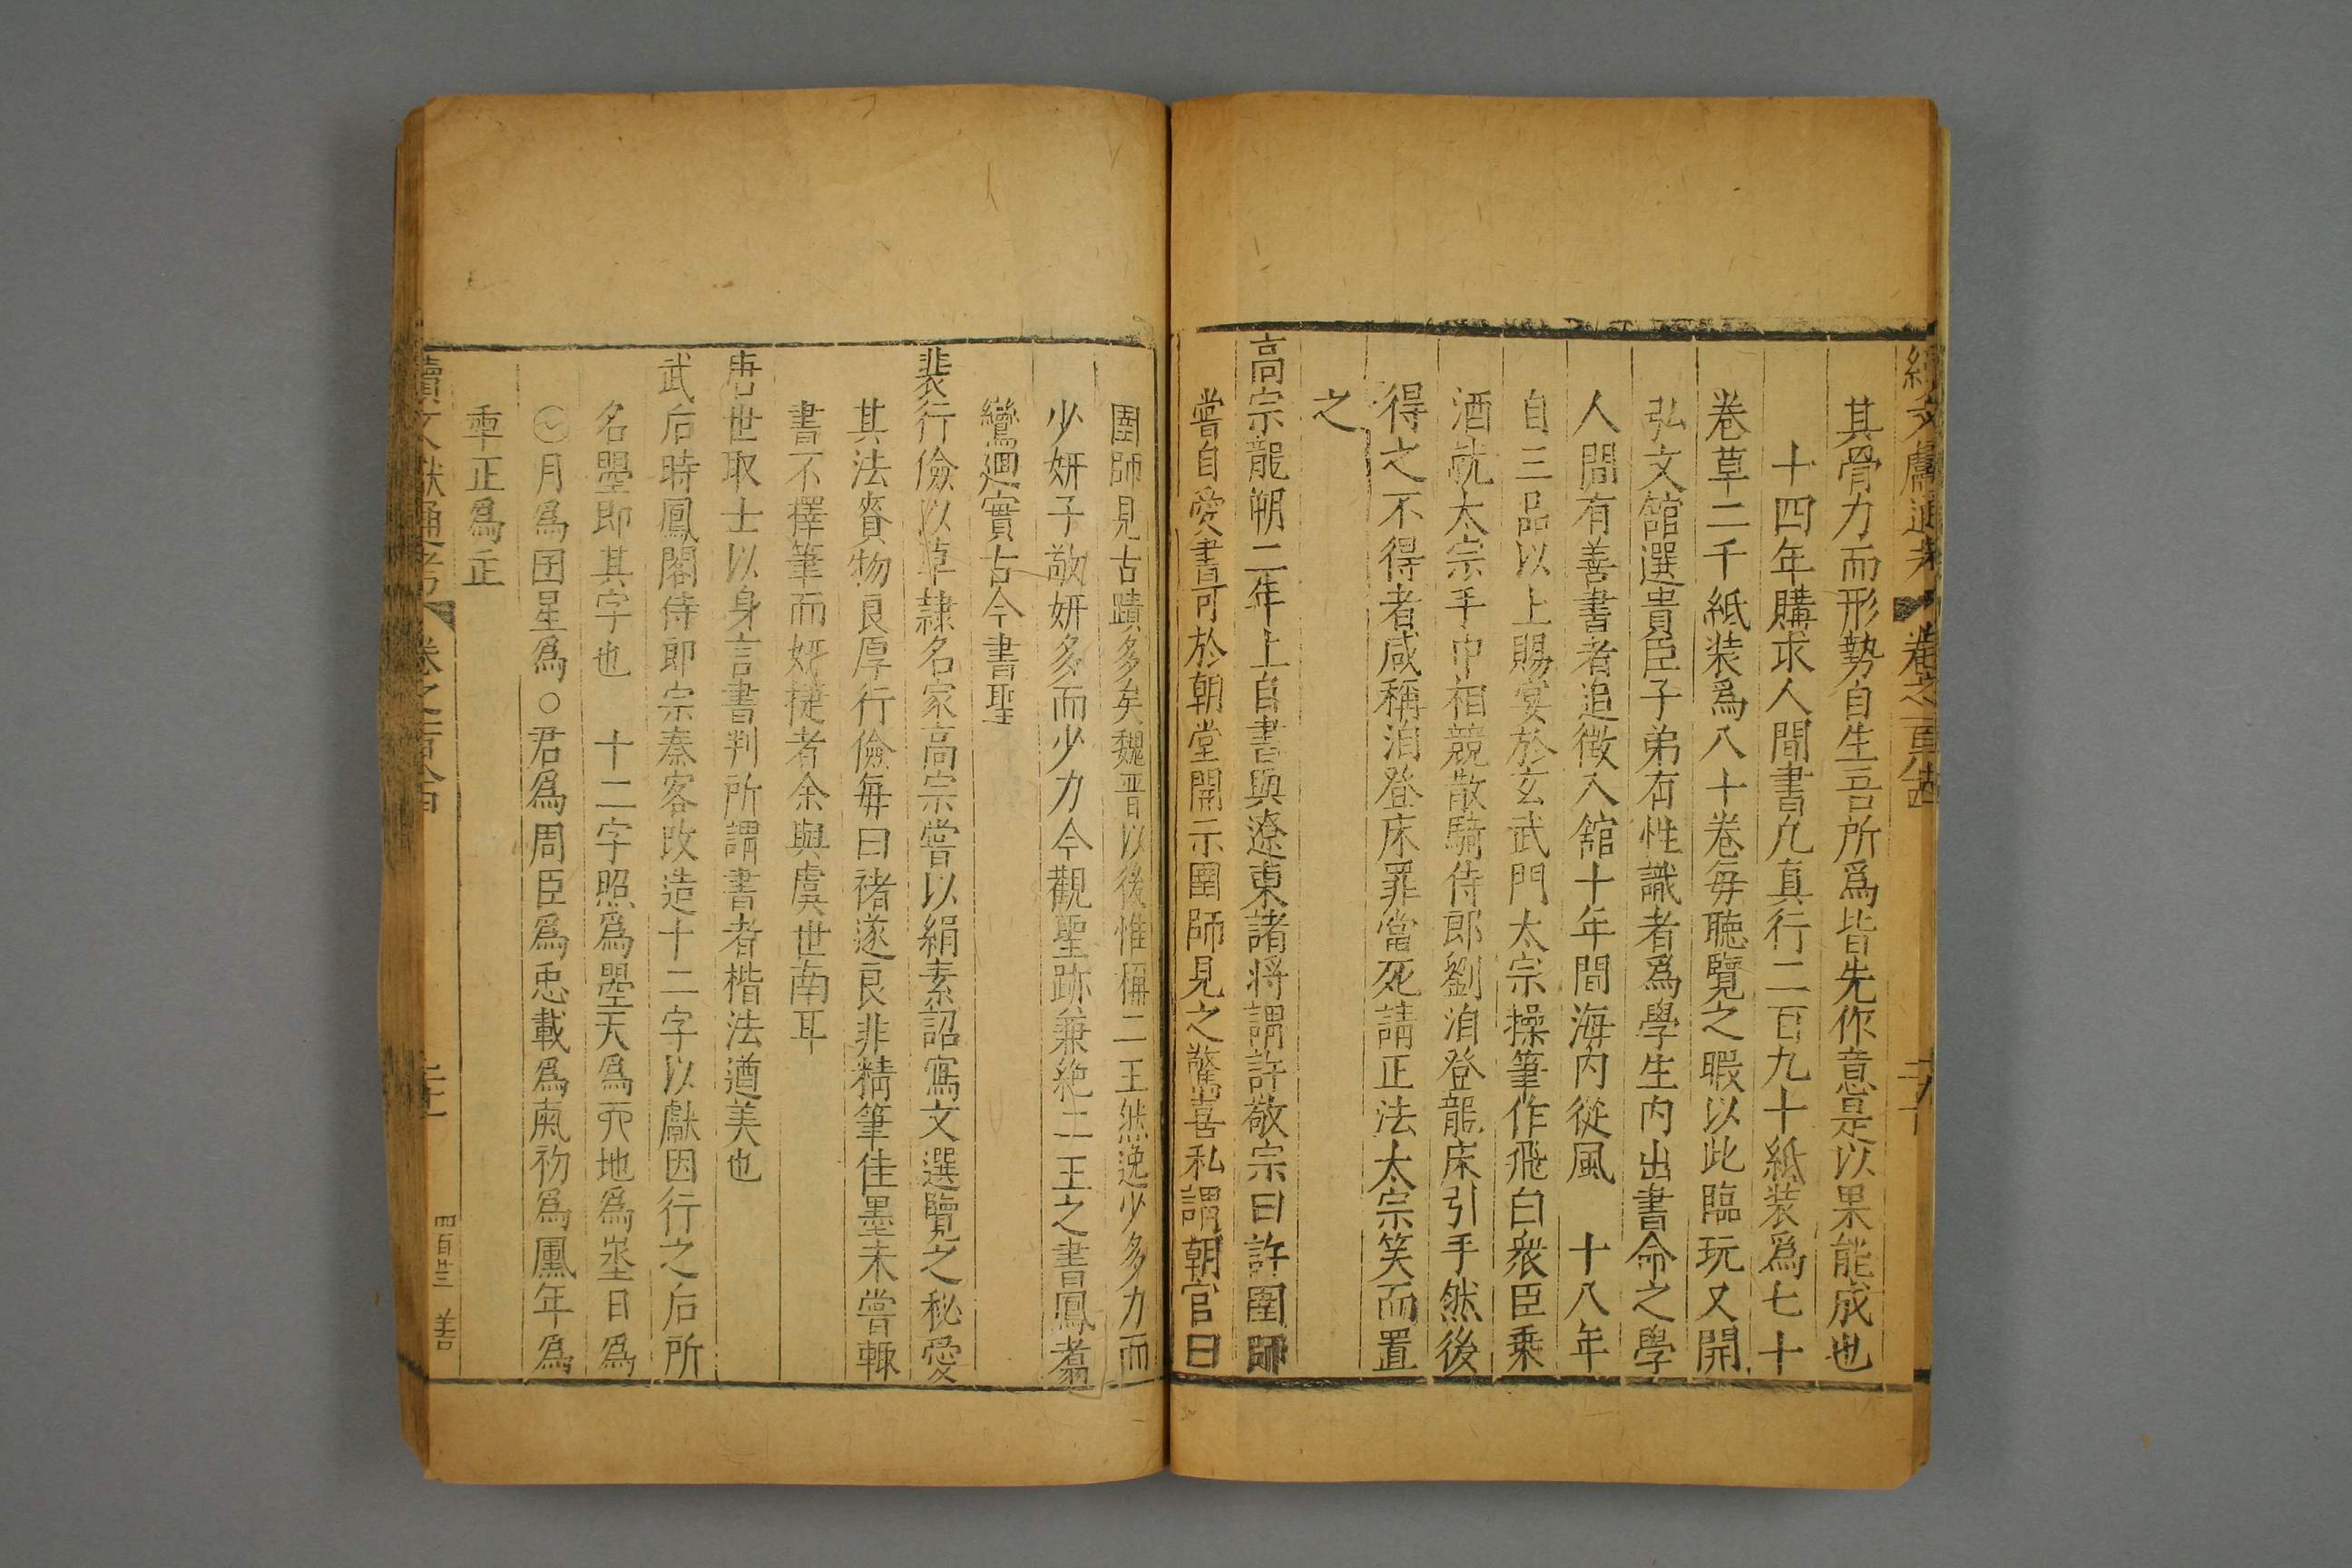 其骨力而形勢自生吾所爲皆先作意是以果能成也
十四年購求人間書凢真行二百九十紙装爲七十
卷草二千紙装爲八十卷毎聴覽之暇以此臨玩又開
弘文舘選貴臣子弟有性識者爲學生内出書命之學
人間有善書者追徵入舘十年間海内從風 十八年
自三品以上賜宴於玄武門太宗操筆作飛白衆臣乗
酒就太宗手中相競散騎侍郎劉洎登龍床引手然後
得之不得者咸稱洎登床罪當死請正法太宗笑而置
之
高宗龍朔二年上自書與遼東諸将謂許敬宗曰許圉師
嘗自愛書可於朝堂開示圉師見之驚喜私謂朝官曰
圉師見古蹟多矣魏晋以後惟稱二王然逸少多力而
少妍子敬妍多而少力今觀聖跡兼絶二王之書鳳翥
鸞迴實古今書聖
裴行儉以草隷名家高宗嘗以絹素詔寫文選覽之秘愛
其法賚物良厚行儉毎曰禇遂良非精筆佳墨未嘗輙
書不擇筆而妍捷者余與虞世南耳
唐世取士以身言書判所謂書者楷法遒美也
武后時鳳閣侍郎宗秦客改造十二字以獻因行之后所
名曌即其字也 十二字照爲曌天爲𠀑地爲埊日爲
㋡月爲囝星爲〇君爲𠁈臣爲𢘑載爲𡕀初爲𡔈年爲
𠡦正爲𠙺
續文獻通考 卷之百八四
四百廿三 善